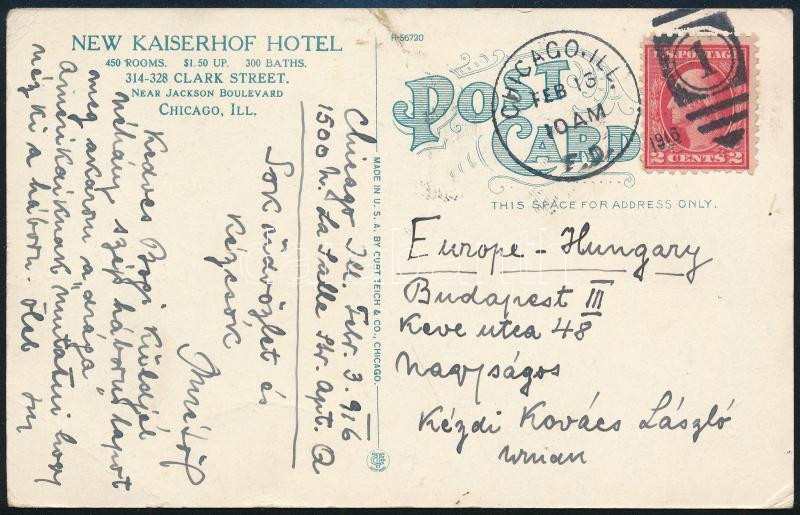 NEW KAISERHOF HOTEL
450 ROOMS. $1.50 UP. 300 BATHS.
314-328 CLARK STREET.
NEAR JACKSON BOULEVARD
CHICAGO, ILL.
Kedves Bogi Küldjél
néhány szép háborus lapot
meg akarom a "drága"
Amerikaiknak mutatni hogy
néz ki a háboru. Ölel
Sok üdvözlet és
kézcsók
Chicago Ill. Febr. 3. 916
1500 N. La Salle Str. Apt. Q
MADE IN U.S.A. BY CURT TEICH & CO., CHICAGO.
R-56720
POST
CARD
THIS SPACE FOR ADDRESS ONLY.
CHICAGO, ILL.
FEB 13
10 AM
F.D.
1916
1
U.S. POSTAGE
2 CENTS 2
Europe - Hungary
Budapest III
Keve utca 48
Nagyságos
Kézdi Kovács László
urnak